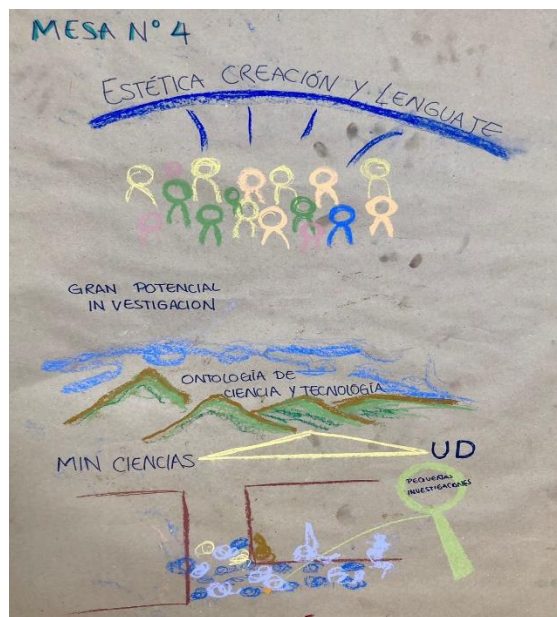 MESA N° 4
ESTÉTICA CREACIÓN Y LENGUATE
GRAN POTENCIAL
IN VESTIGACION
ONTOLOGÍA DE
CIENCIA Y TECNOLOGÍA
MIN CIENCIAS
UD
PEQUEÑAS
INVESTIGACIONES